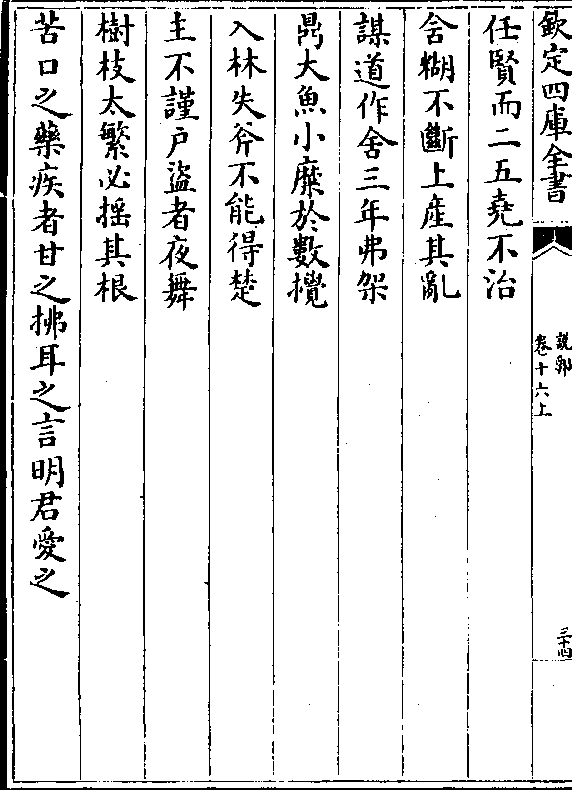 欽定四庫全書
說郛
卷十六上
三十四
任賢而二五堯不治
含糊不斷上産其亂
謀道作舍三年弗架
鼎大魚小糜於數攪
入林失斧不能得楚
主不謹戶盜者夜舞
樹枝太繁必揺其根
苦口之藥疾者甘之拂耳之言明君愛之